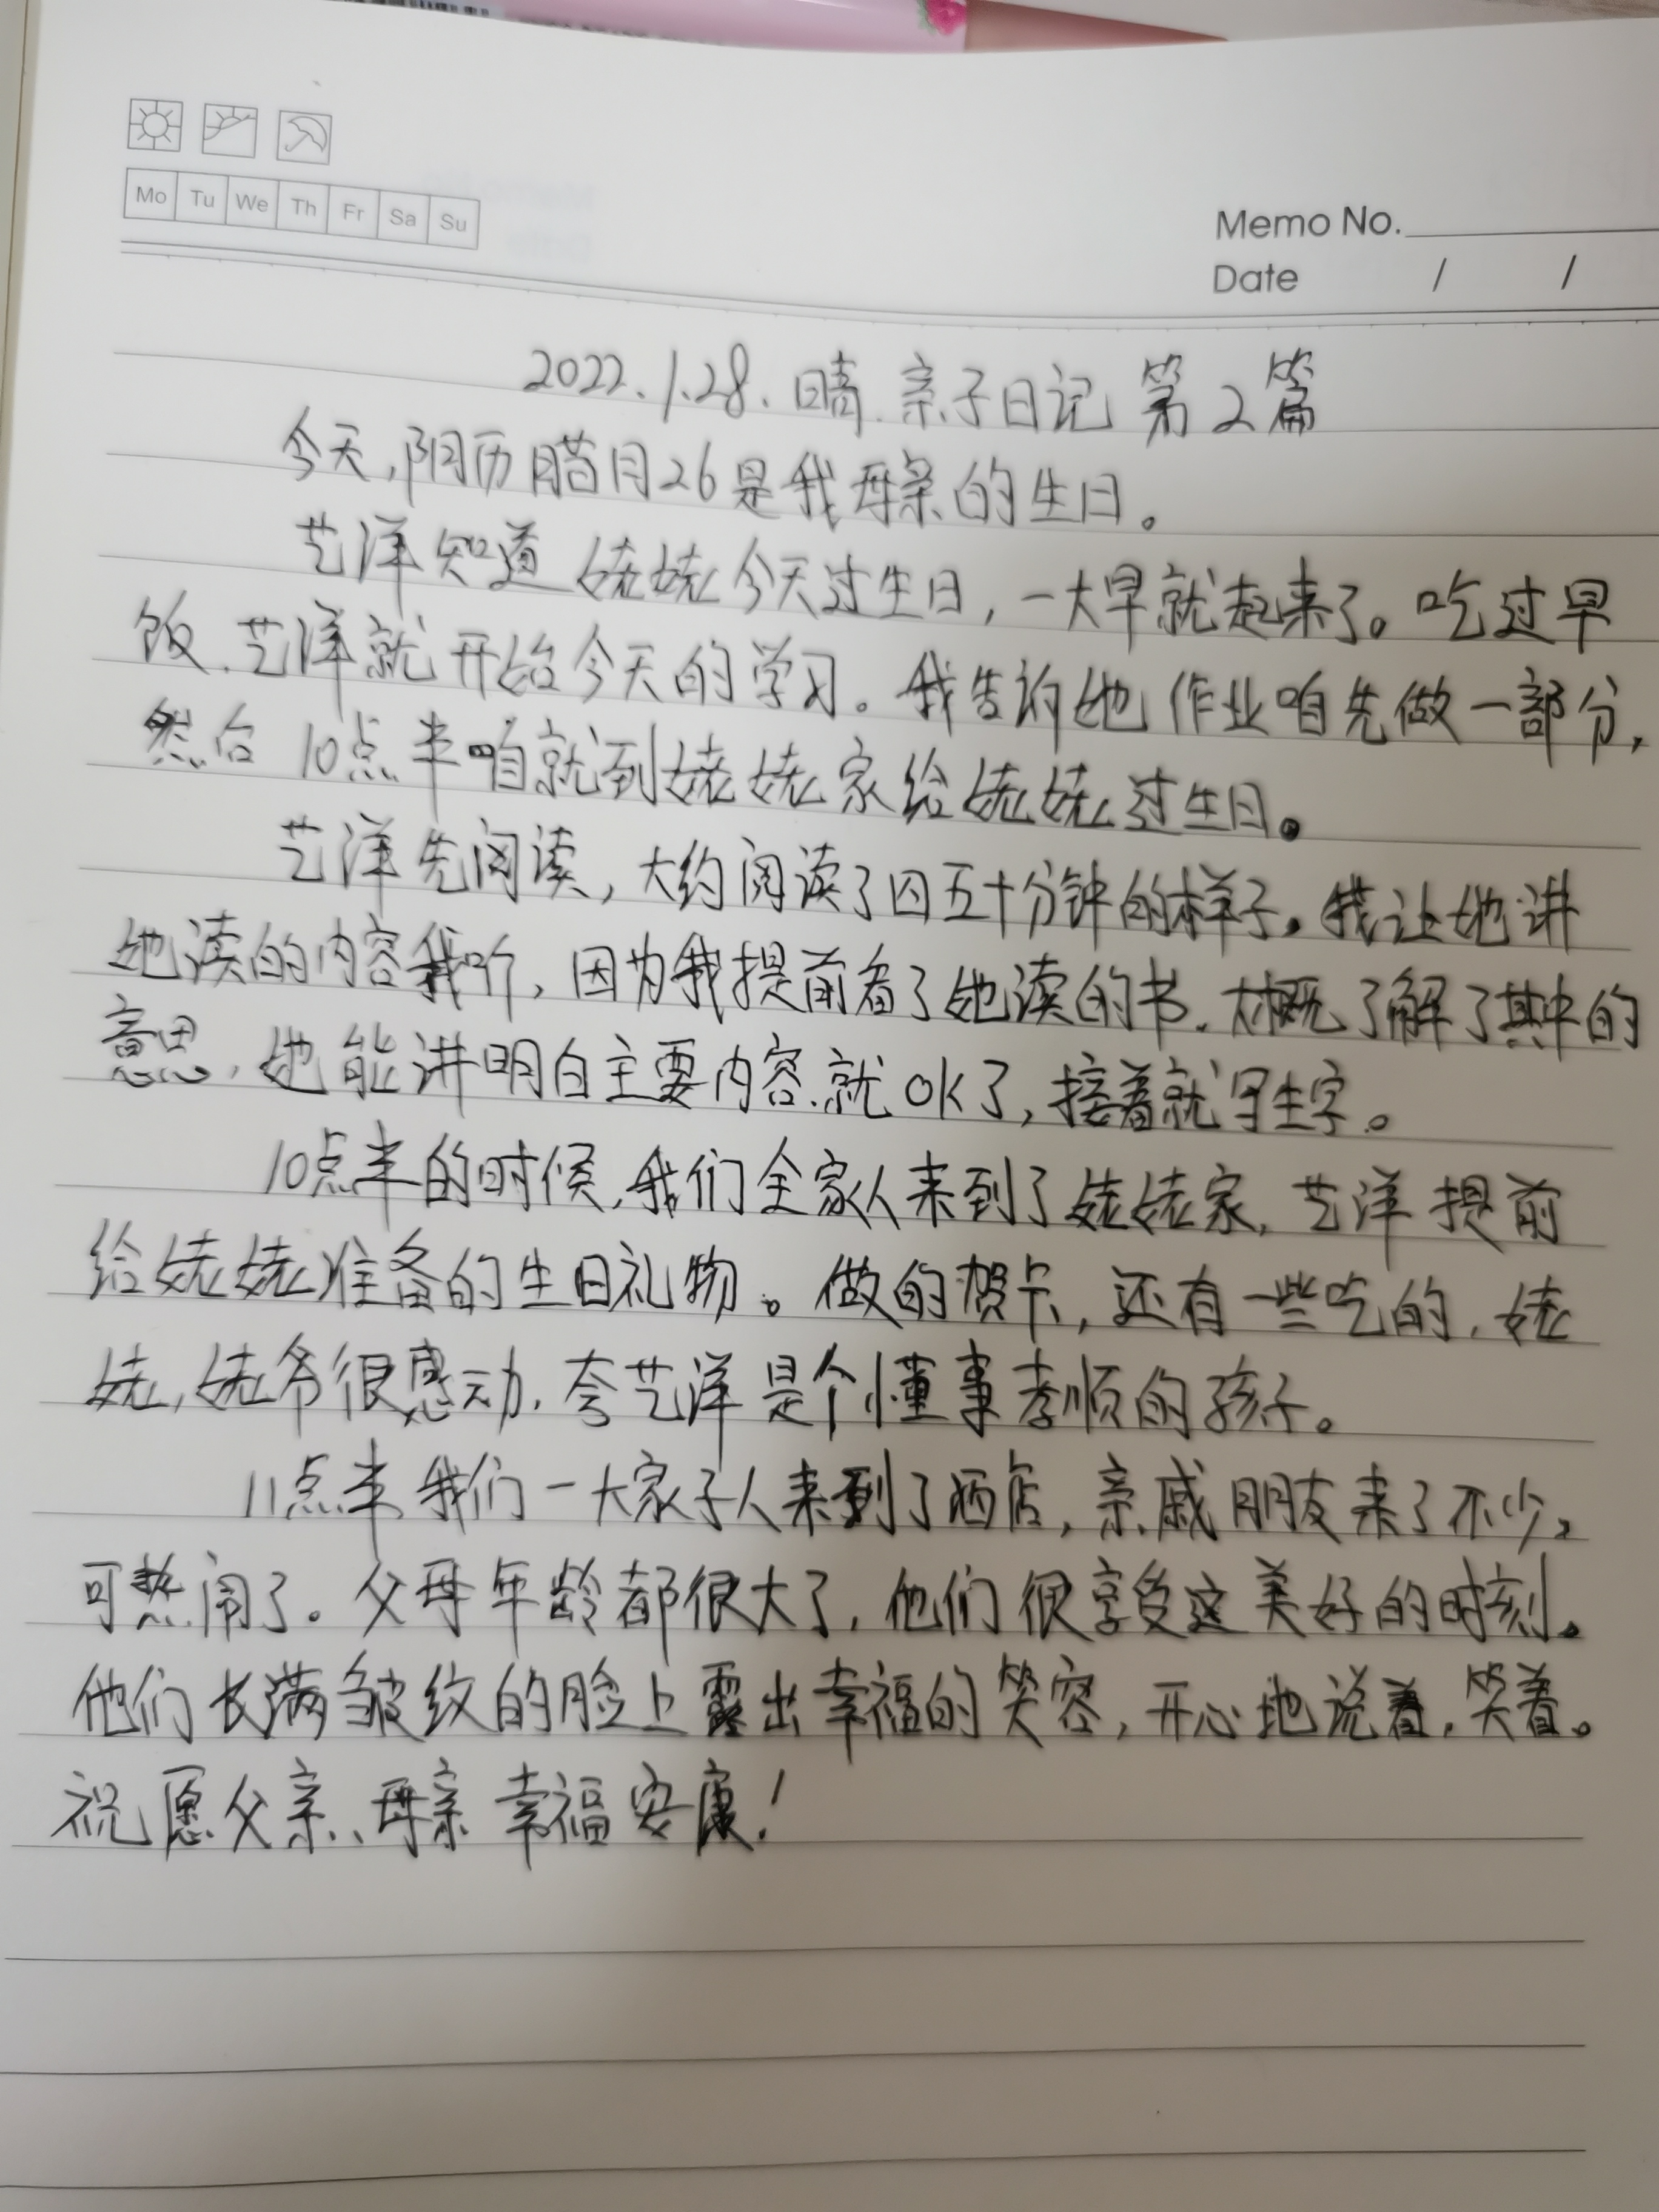 Mo Tu We Th Fr Sa Su
Memo No.
Date / /
2022.1.28.晴.亲子日记 第2篇
今天,阴历腊月26是我母亲的生日。
艺洋知道姥姥今天过生日,一大早就起来了。吃过早
饭.艺洋就开始今天的学习。我告诉她作业咱先做一部分,
然后10点半咱就到姥姥家给姥姥过生日。
艺洋先阅读,大约阅读了四五十分钟的样子。我让她讲
她读的内容我听,因为我提前看了她读的书.大概了解了其中的
意思,她能讲明白主要内容.就OK了,接着就写生字。
10点半的时候,我们全家人来到了姥姥家,艺洋提前
给姥姥准备的生日礼物。做的贺卡,还有一些吃的,姥
姥,姥爷很感动.夸艺洋是个懂事孝顺的孩子。
11点半我们一大家子人来到了酒店,亲戚朋友来了不少,
可热闹了。父母年龄都很大了,他们很享受这美好的时刻。
他们长满皱纹的脸上露出幸福的笑容,开心地说着,笑着。
祝愿父亲、母亲幸福安康!